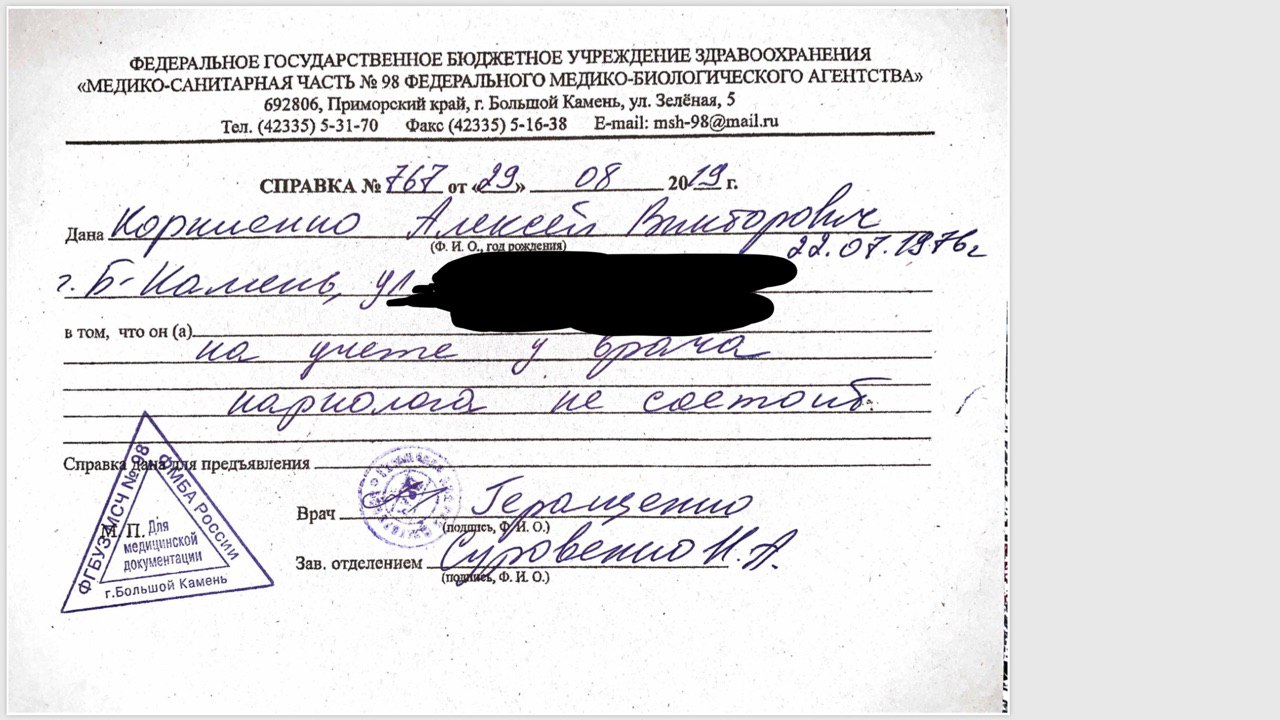 ФЕДЕРАЛЬНОЕ ГОСУДАРСТВЕННОЕ БЮДЖЕТНОЕ УЧРЕЖДЕНИЕ ЗДРАВООХРАНЕНИЯ
«МЕДИКО-САНИТАРНАЯ ЧАСТЬ № 98 ФЕДЕРАЛЬНОГО МЕДИКО-БИОЛОГИЧЕСКОГО АГЕНТСТВА»
692806, Приморский край, г. Большой Камень, ул. Зелёная, 5
Тел. (42335) 5-31-70 Факс (42335) 5-16-38 E-mail: msh-98@mail.ru
СПРАВКА № 767 от «29» 08 2019 г.
Дана Корниенко Алексей Викторович
(Ф. И. О., год рождения)
22.07.1976г
г. Б-Камень, ул
в том, что он (а)
на учете у врача
нарколога не состоит.
Справка дана для предъявления
Врач Геращенко
(подпись, Ф. И. О.)
Зав. отделением Суровенко Н.А.
(подпись, Ф. И. О.)
М. П.
ФГБУЗ МСЧ № 98
ФМБА РОССИИ
Для
медицинской
документации
г.Большой Камень